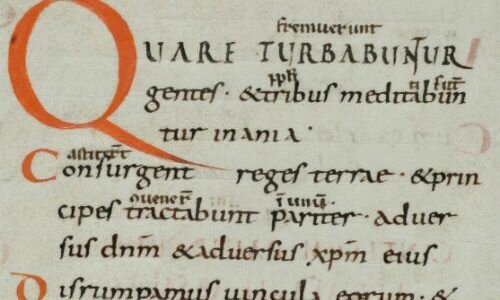 fremuerunt
QUARE TURBABUNTUR
ppli ti sunt
gentes · &tribus meditabun
tur inania ·
astiter̄t
Consurgent reges terrae · &prin
quener̄t ī unū
cipes tractabunt pariter · aduer
sus dnm̄ &aduersus xpm̄ eius
Disrumpamus uincula eorum · &